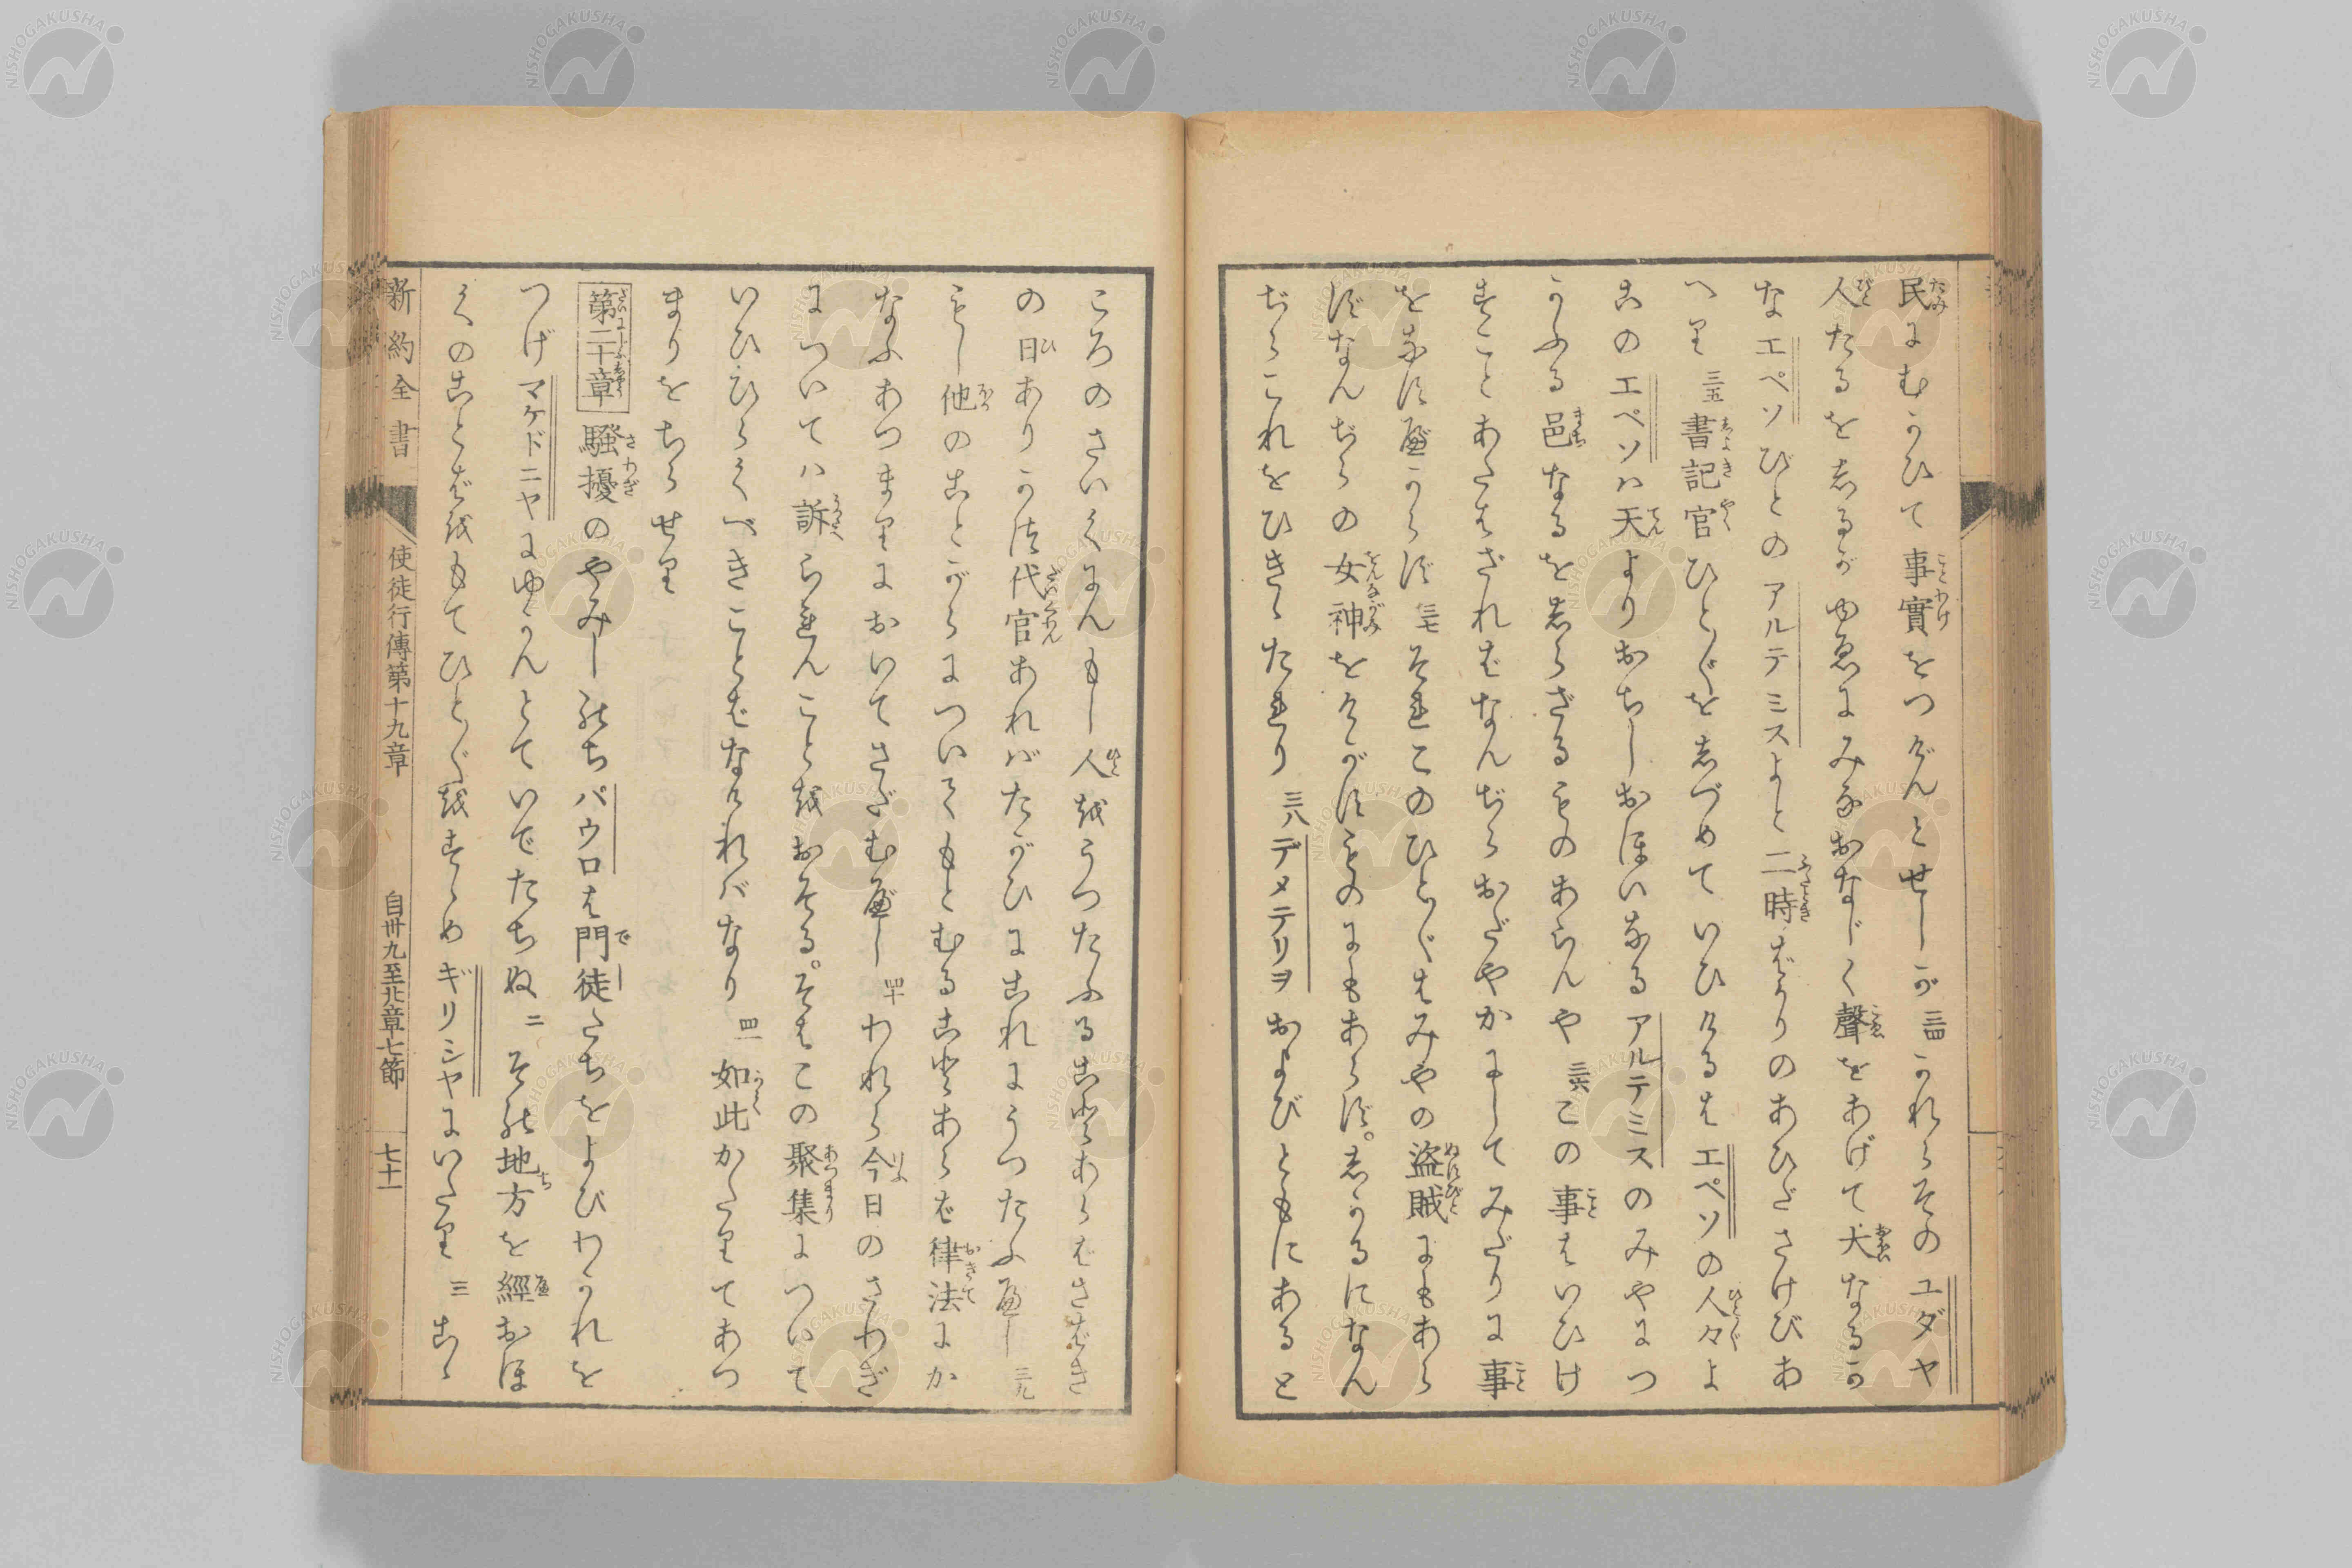 民にむかひて事實をつげんとせしが 三四 かれらそのユダヤ
人たるをしるがゆゑにみなおなじく聲をあげて大なるか
なエペソびとのアルテミスよと二時ばかりのあひださけびあ
へり 三五 書記官ひと〴〵をしづめていひけるはエペソの人々よ
このエペソハ天よりおちしおほいなるアルテミスのみやにつ
かふる邑なるをしらざるものあらんや 三六 この事はいひけ
すことあたはざればなんぢらおだやかにしてみだりに事
をなすべからず 三七 それこのひと〴〵はみやの盗賊にもあら
ずなんぢらの女神をけがすものにもあらず。しかるになん
ぢらこれをひきゝたれり 三八 デメテリヲおよびともにあると
ころのさいくにんもし人をうつたふることあらばさばき
の日ありかつ代官あればたがひにこれにうつたふべし 三九
もし他のことがらについてもとむることあらば律法にか
なふあつまりにおいてさだむべし 四十 われら今日のさわぎ
についてハ訴られんことをおそる。そはこの聚集について
いひひらくべきことばなければなり 四一 如此かたりてあつ
まりをちらせり
第二十章 騒擾のやみしのちパウロは門徒たちをよびわかれを
つげマケドニヤにゆかんとていでたちぬ 二 その地方を經おほ
くのことばをもてひと〴〵をすゝめギリシヤにいたり 三 こゝ
新約全書 使徒行傳第十九章 自卅九至廿章七節 七十一
NISHOGAKUSHA